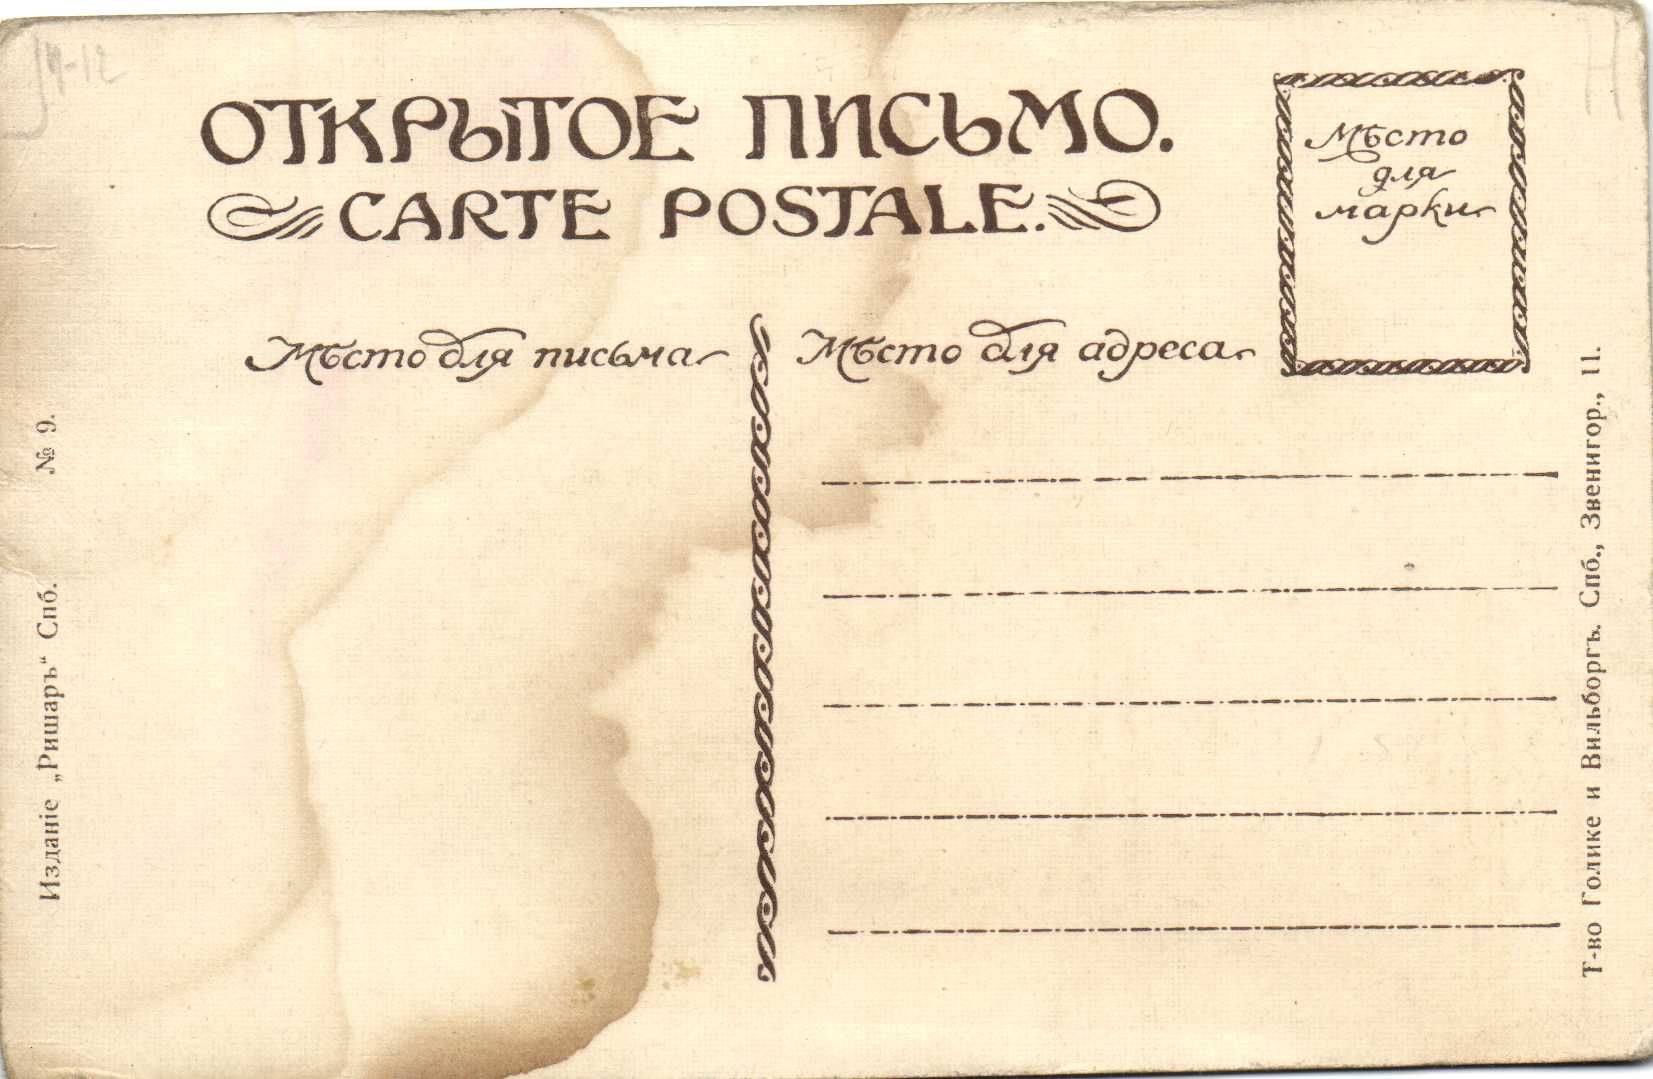 ОТКРЫТОЕ ПИСЬМО.
CARTE POSTALE.
Мѣсто
для
марки
Мѣсто для письма
Мѣсто для адреса
Изданіе „Ришаръ“ Спб. № 9.
Т-во Голике и Вильборгъ. Спб., Звенигор., 11.